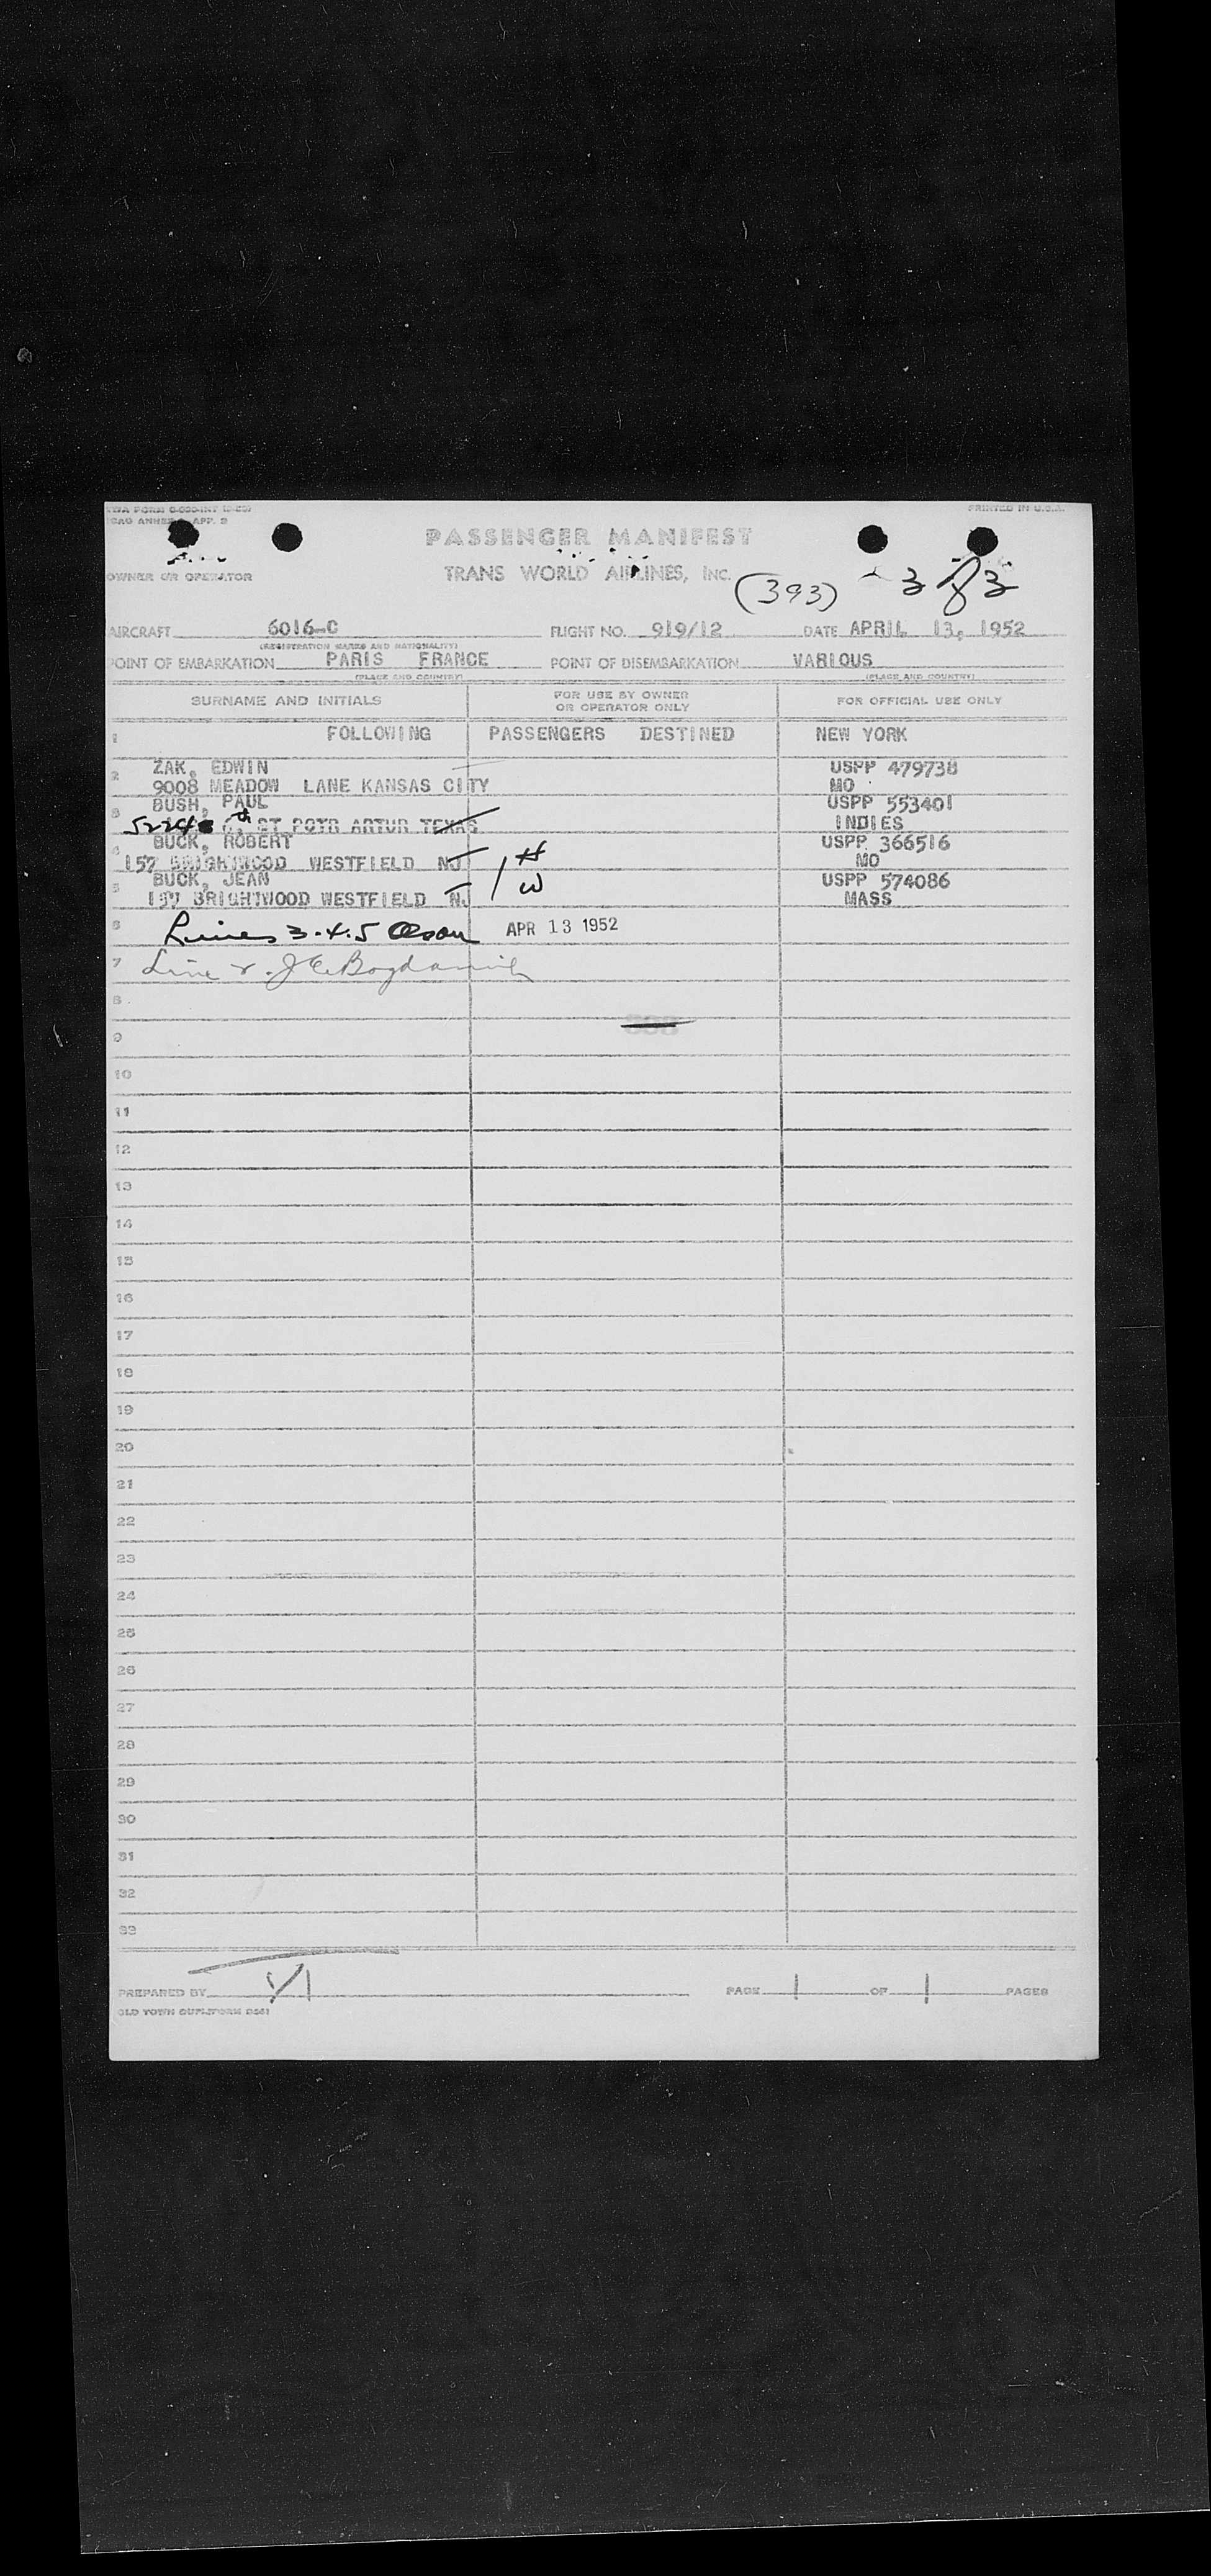 TWA FORM
ICAO ANNEX APP. 2
PRINTED IN U.S.A.
PASSENGER MANIFEST
OWNER OR OPERATOR
TRANS WORLD AIRLINES, INC.
(393) 3 of 3
AIRCRAFT 6016-C FLIGHT NO. 919/12 DATE APRIL 13, 1952
(REGISTRATION MARKS AND NATIONALITY)
POINT OF EMBARKATION PARIS FRANCE POINT OF DISEMBARKATION VARIOUS
(PLACE AND COUNTRY) (PLACE AND COUNTRY)
SURNAME AND INITIALS FOR USE BY OWNER OR OPERATOR ONLY FOR OFFICIAL USE ONLY
1 FOLLOWING PASSENGERS DESTINED NEW YORK
2 ZAK, EDWIN USPP 479738
9008 MEADOW LANE KANSAS CITY MO
3 BUSH, PAUL USPP 553401
5224 th ST POTR ARTUR TEXAS INDIES
4 BUCK, ROBERT USPP 366516
157 BRIGHTWOOD WESTFIELD NJ H MO
5 BUCK, JEAN W USPP 574086
157 BRIGHTWOOD WESTFIELD NJ MASS
6 Lines 3.4.5 Olson APR 13 1952
7 Line 2. J E
8
9
10
11
12
13
14
15
16
17
18
19
20
21
22
23
24
25
26
27
28
29
30
31
32
33
PREPARED BY PAGE 1 OF 1 PAGES
OLD TOWN